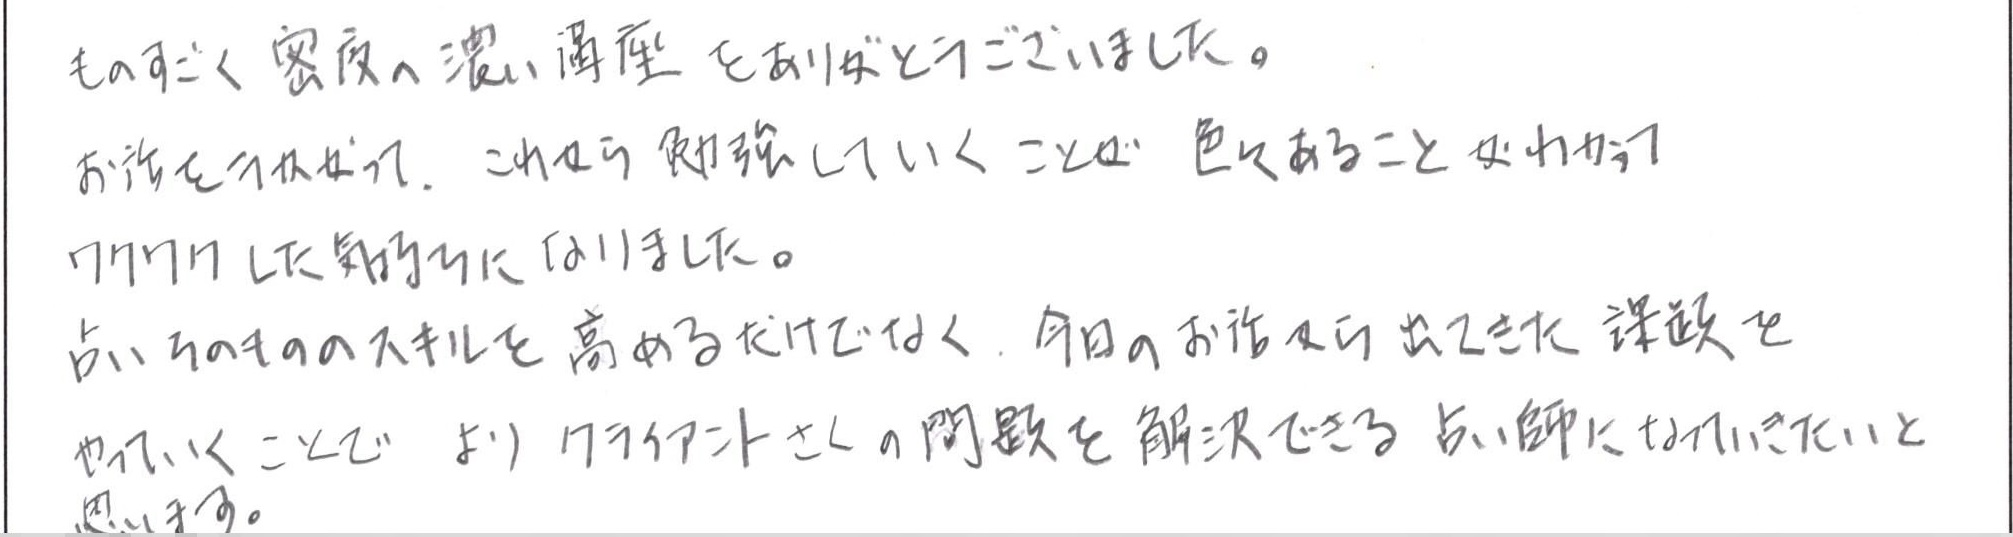 ものすごく密度の濃い講座をありがとうございました。
お話をうかがって、これから勉強していくことが色々あることがわかって
ワクワクした気持ちになりました。
占いそのもののスキルを高めるだけでなく、今日のお話から出てきた課題を
やっていくことでよりクライアントさんの問題を解決できる占い師になっていきたいと
思います。